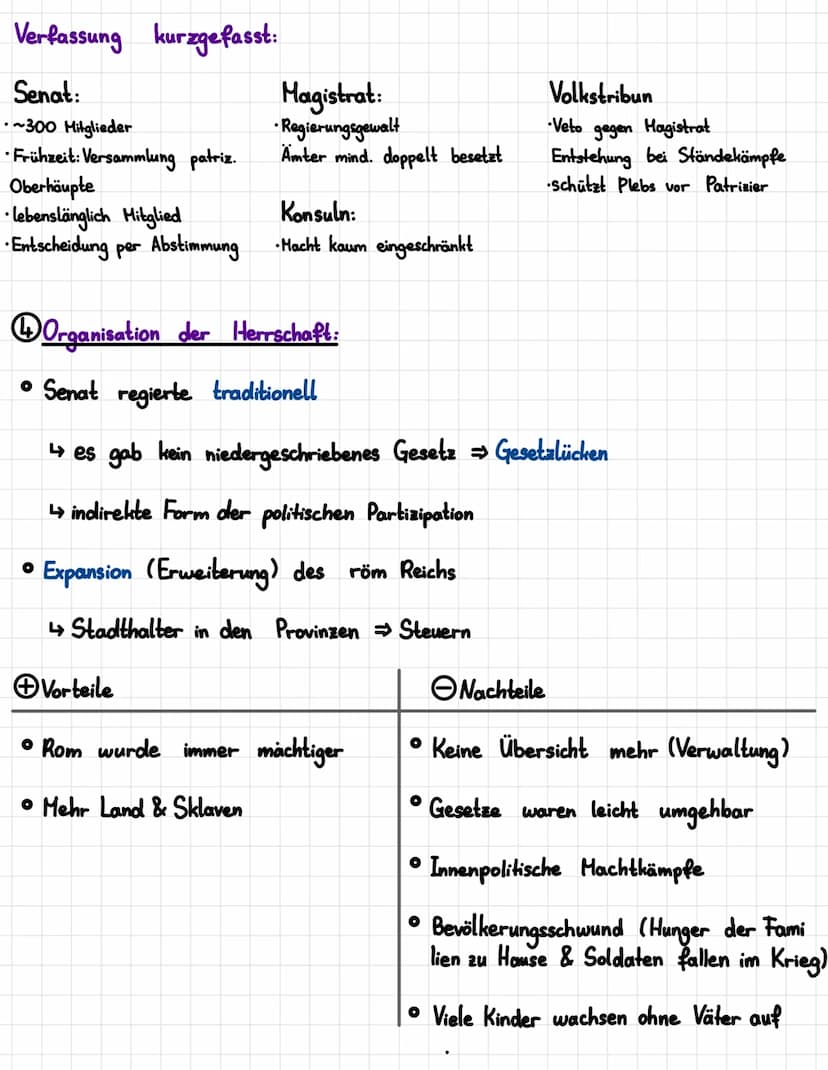 Verfassung kurzgefasst:
Senat:
·~300 Mitglieder
·Frühzeit: Versammlung patriz.
Oberhäupte
·lebenslänglich Mitglied
·Entscheidung per Abstimmung
Magistrat:
·Regierungsgewalt
Ämter mind. doppelt besetzt
Konsuln:
·Macht kaum eingeschränkt
Volkstribun
·Veto gegen Magistrat
Entstehung bei Ständekämpfe
·schützt Plebs vor Patrizier
④ Organisation der Herrschaft:
° Senat regierte traditionell
↳ es gab kein niedergeschriebenes Gesetz ⇒ Gesetzlücken
↳ indirekte Form der politischen Partizipation
° Expansion (Erweiterung) des röm Reichs
↳ Stadthalter in den Provinzen ⇒ Steuern
⊕ Vorteile
° Rom wurde immer mächtiger
° Mehr Land & Sklaven
⊖ Nachteile
° Keine Übersicht mehr (Verwaltung)
° Gesetze waren leicht umgehbar
° Innenpolitische Machtkämpfe
° Bevölkerungsschwund (Hunger der Fami
lien zu Hause & Soldaten fallen im Krieg)
° Viele Kinder wachsen ohne Väter auf